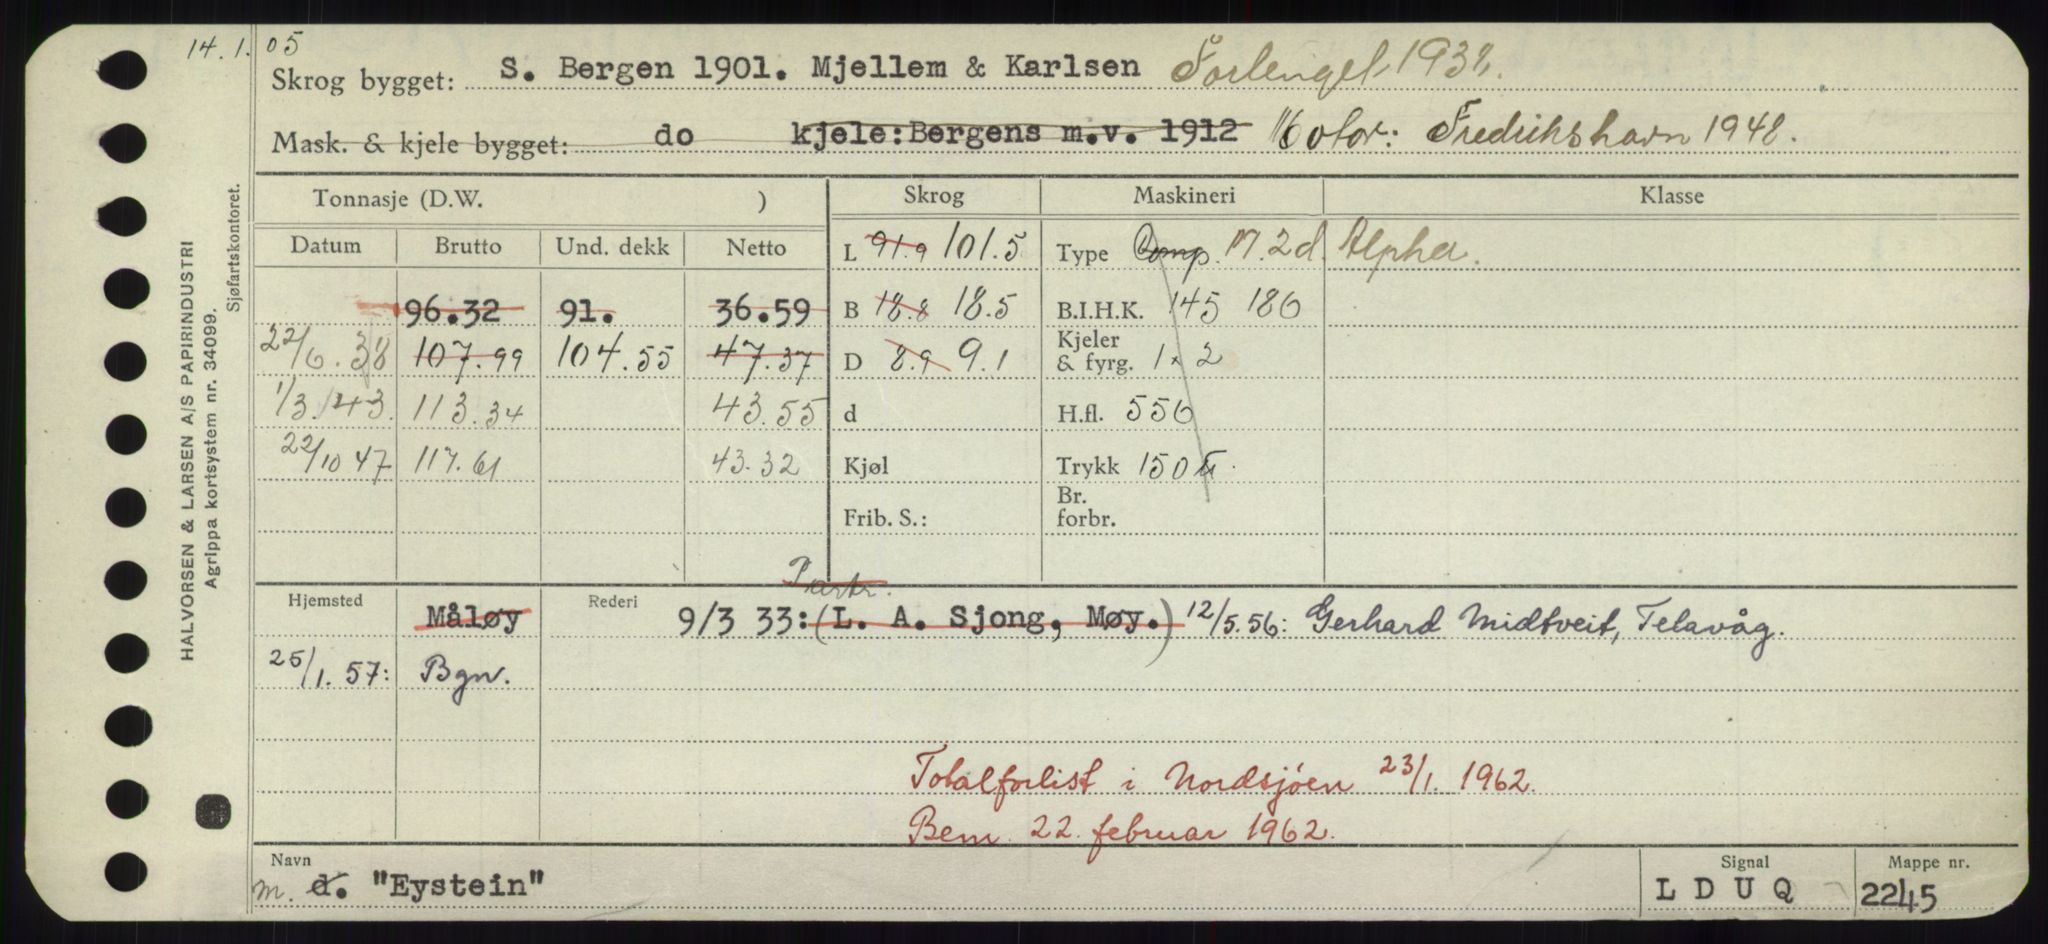 14.1.05
Skrog bygget: S. Bergen 1901. Mjellem & Karlsen Forlenget 1938.
Mask. & kjele bygget: do kjele:Bergens m.v. 1912 Motor: Fredrikshavn 1948.
Tonnasje (D.W. ) Skrog Maskineri Klasse
Datum Brutto Und. dekk Netto L 91.9 101.5 Type Comp. M.2d. Alpha.
96.32 91. 36.59 B 18.8 18.5 B.I.H.K. 145 180
22/6.38 107.99 104.55 47.37 D 8.9 9.1 Kjeler & fyrg. 1 x 2
1/3.43. 113.34 43.55 d H.fl. 556
22/10 47 117.61 43.32 Kjøl Trykk 150
Frib. S.: Br. forbr.
Partr.
Hjemsted Måløy Rederi 9/3 33: (L. A. Sjong, Møy.) 12/5.56: Gerhard Midtveit, Telavåg.
25/1.57: Bgn.
Totalforlist i Nordsjöen 23/1. 1962.
Bem. 22. februar 1962.
Navn Signal Mappe nr.
m. d. "Eystein" L D U Q 2245
HALVORSEN & LARSEN A/S PAPIRINDUSTRI
Agrippa kortsystem nr. 34099.
Sjøfartskontoret.